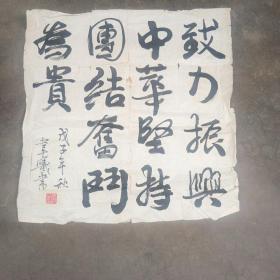 致力振興
中華堅持
團結奮鬥
為貴
戊子年秋